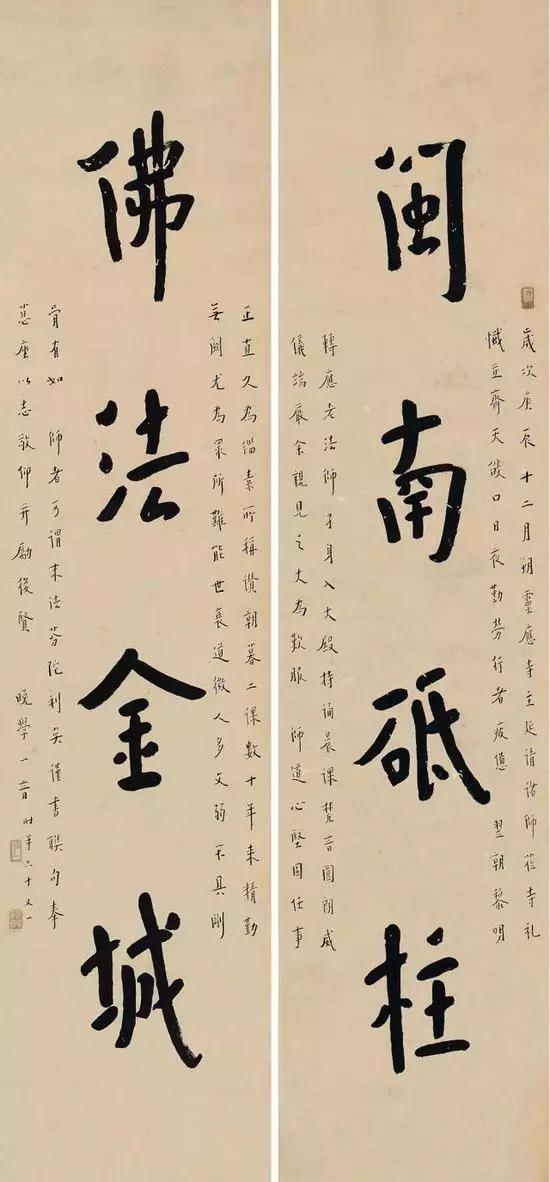 闽南砥柱
歲次庚辰十二月朔靈應寺主延請諸師蒞寺礼
懺並齋天燄口日夜勤勞行者疲憊 翌朝黎明
轉應老法師孑身入大殿持誦晨課梵音圓朗威
儀端嚴余親見之大為歎服 師道心堅固任事
佛法金城
正直久為緇素所稱讚朝暮二課數十年来精勤
無闕尤為眾所難能世衰道微人多文弱不具剛
骨有如 師者可謂末法芬陀利矣謹書聯句奉
慈座以志敬仰并勵後賢 晚學一音時年六十又一